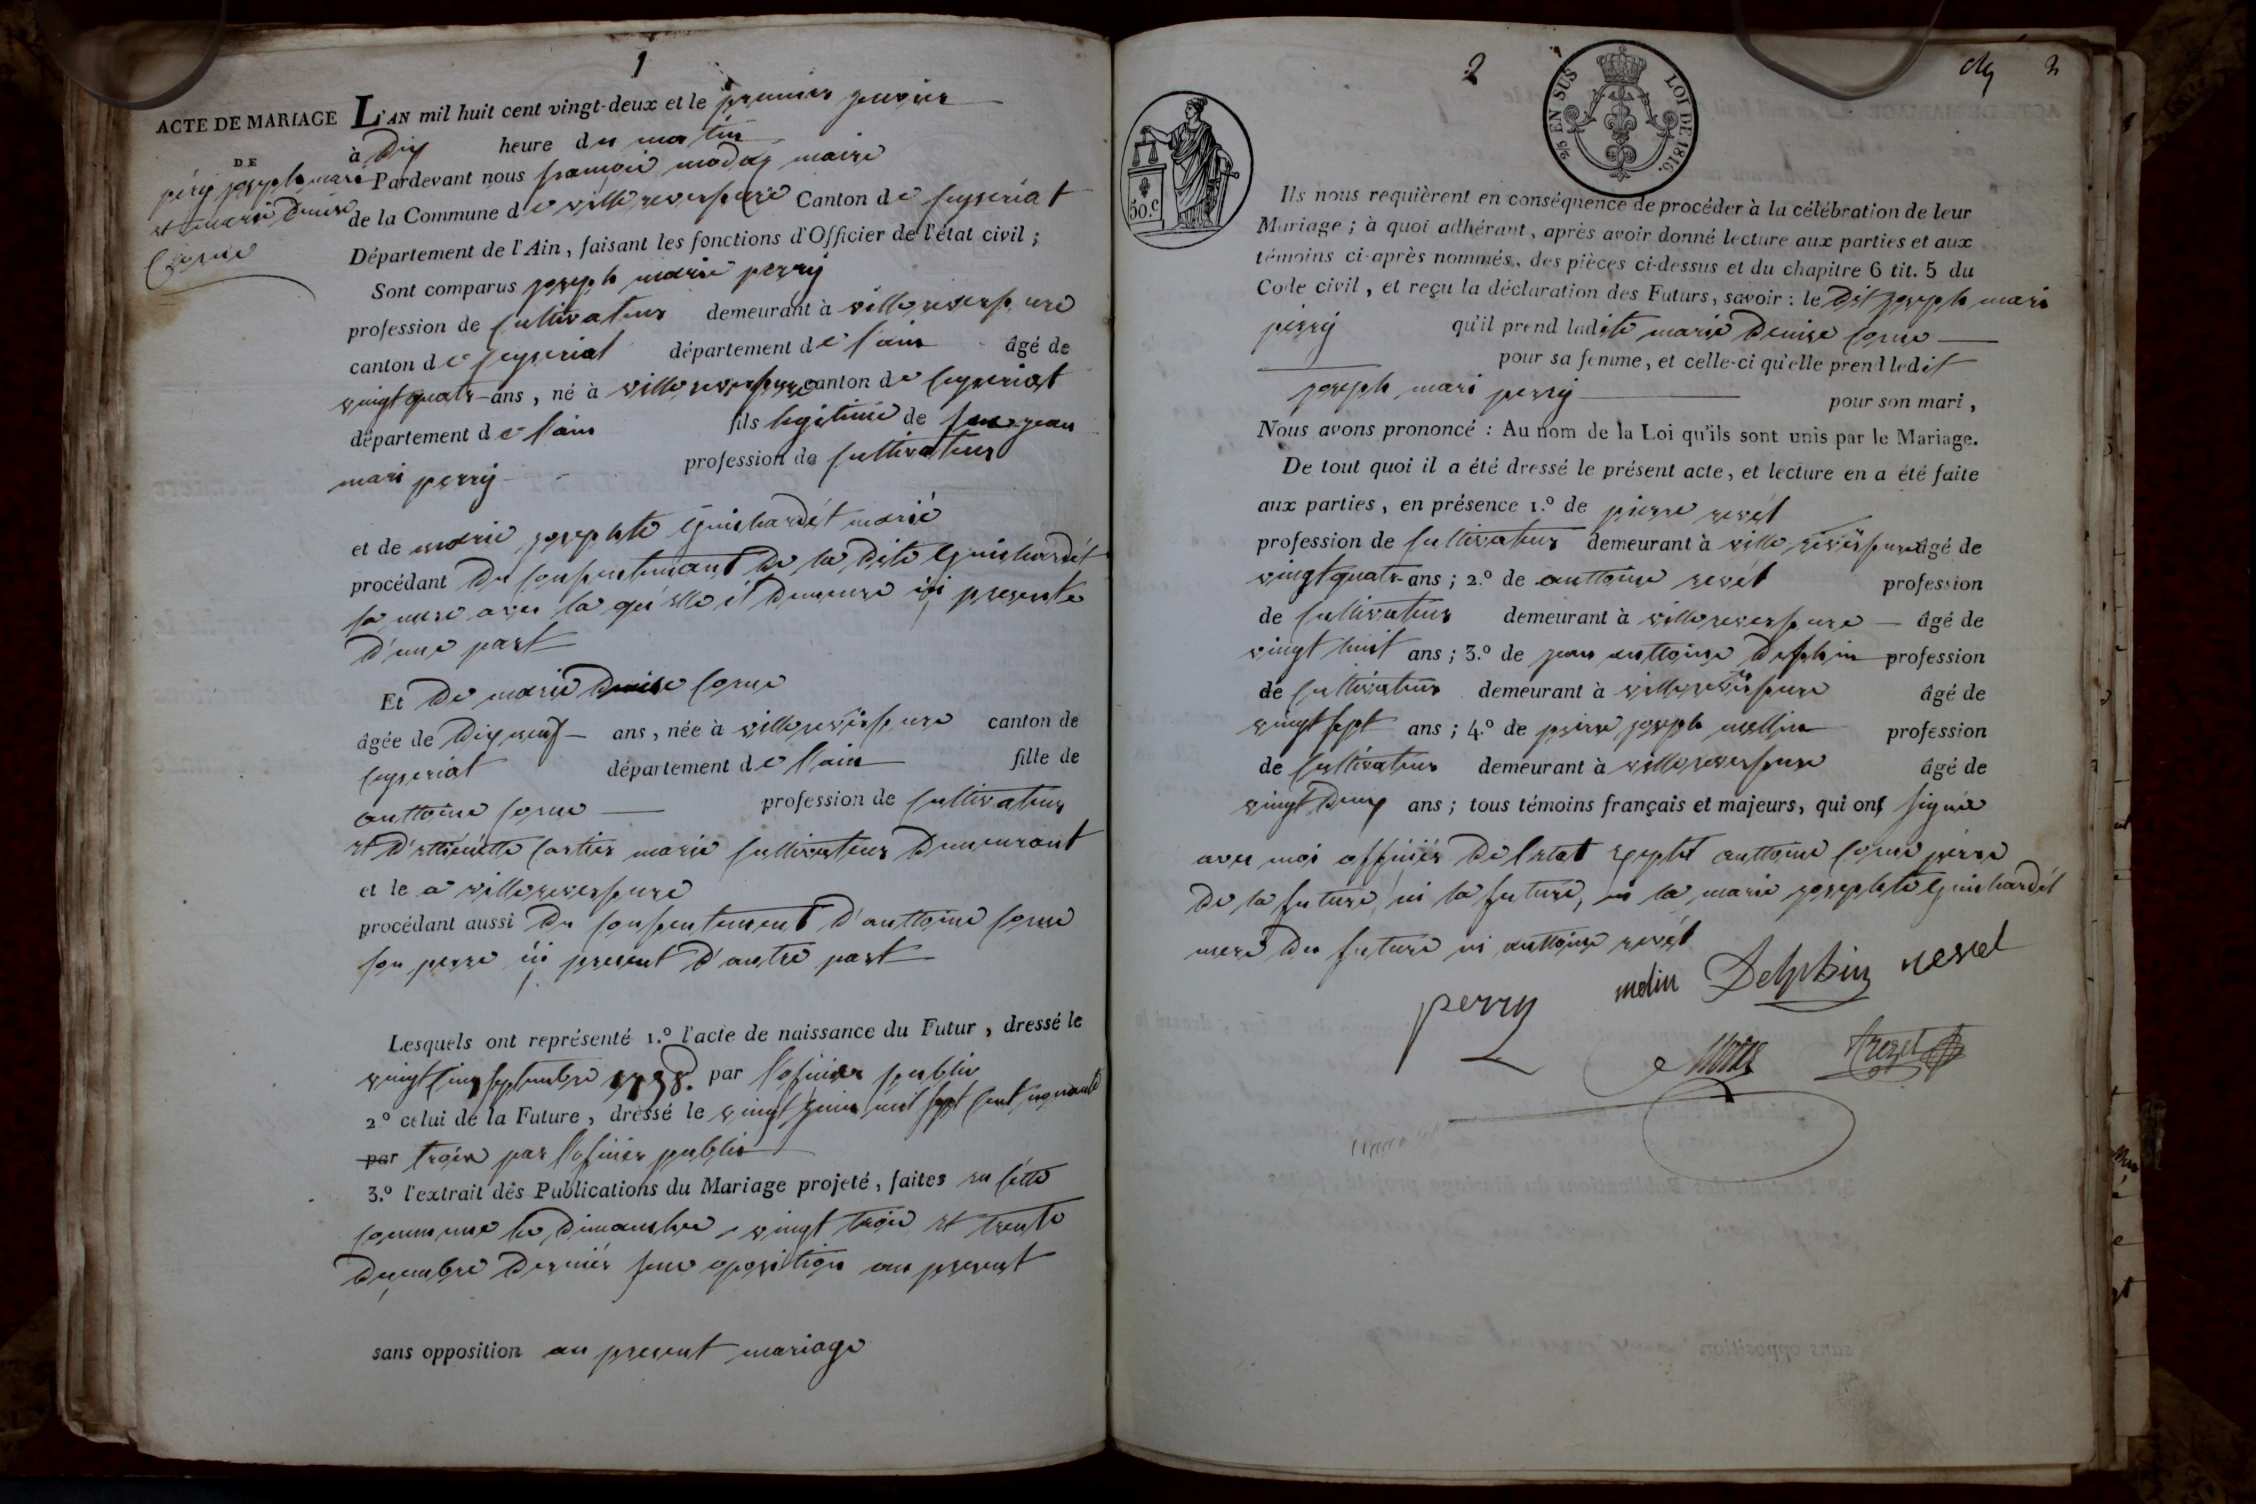 1
ACTE DE MARIAGE
DE
péry joseph mari
et marie Denise
Corne
L'AN mil huit cent vingt-deux et le premier janvier
à Dix heure du matin
Pardevant nous françois modas maire
de la Commune de villereversure Canton de Ceyseriat
Département de l'Ain, faisant les fonctions d'Officier de l'état civil ;
Sont comparus joseph marie perry
profession de Cultivateur demeurant à villereversure
canton de Ceyseriat département de l'ain âgé de
vingt quatr ans, né à villereversure canton de Ceyseriat
département de l'ain fils legitime de feu jean
mari perry profession de Cultivateur
et de marie josephte Guichardét marié
procédant Du Consentemant De la Dite Guichardét
sa mere avec la qu'elle il Demeure ici presente
D'une part
Et De marie Denise Corne
âgée de Dix neuf ans, née à villereversure canton de
Ceyseriat département de l'ain fille de
anttoine Corne profession de Cultivateur
et D'ettienette Cartier marié Cultivateur Demeurant
et le a villereversure
procédant aussi Du Consentement D'anttoine Corne
son perre ici present D'autre part
Lesquels ont représenté 1.º l'acte de naissance du Futur, dressé le
vingt Cinq septembre 1798. par l'oficier public
2º celui de la Future, dressé le vingt juin mil sept Cent nonante
par trois par l'oficier public
3.º l'extrait des Publications du Mariage projeté, faites en Cette
Commune le Dimanche vingt trois et trente
Decembre Dernier sans oposition au present
sans opposition au present mariage
2
2
50.C
25 EN SUS
LOI DE 1816.
Ils nous requièrent en conséquence de procéder à la célébration de leur
Mariage ; à quoi adhérant, après avoir donné lecture aux parties et aux
témoins ci-après nommés, des pièces ci-dessus et du chapitre 6 tit. 5 du
Code civil, et reçu la déclaration des Futurs, savoir : le Dit joseph mari
perry qu'il prend ladite marie Denise Corne
pour sa femme, et celle-ci qu'elle prend ledit
joseph mari perry pour son mari,
Nous avons prononcé : Au nom de la Loi qu'ils sont unis par le Mariage.
De tout quoi il a été dressé le présent acte, et lecture en a été faite
aux parties, en présence 1.º de pierre revét
profession de Cultivateur demeurant à villereversure âgé de
vingt quatr ans ; 2.º de anttoine revét profession
de Cultivateur demeurant à villereversure âgé de
vingt huit ans ; 3.º de jean anttoine Delphin profession
de Cultivateur demeurant à villereversure âgé de
vingt sept ans ; 4.º de pierre joseph mellin profession
de Cultivateur demeurant à villereversure âgé de
vingt Deux ans ; tous témoins français et majeurs, qui ont signé
avec moi officier De l'etat exepté anttoine Corne perre
De la future, ni la future, ni la marie josephte Guichardét
mere Du future ni anttoine revét
perry melin Delphin revel